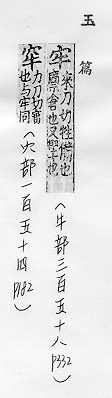 玉篇
牢 來刀切牲備也
廩倉也又堅也
(牛部三百五十八 P332)
窂 力刀切
也与牢同
(穴部一百五十四 P182)